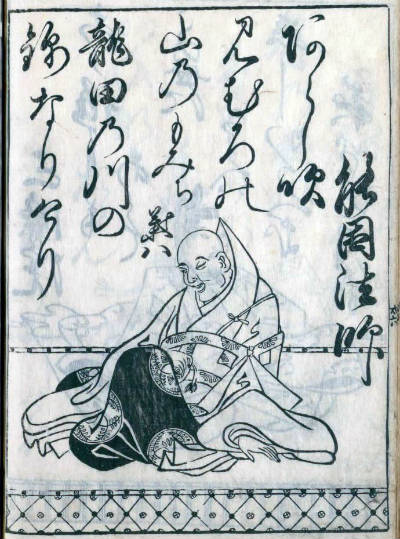 能因法師
あらし吹
みむろの
山乃もみち
葉ハ
龍田乃川の
錦なりけり